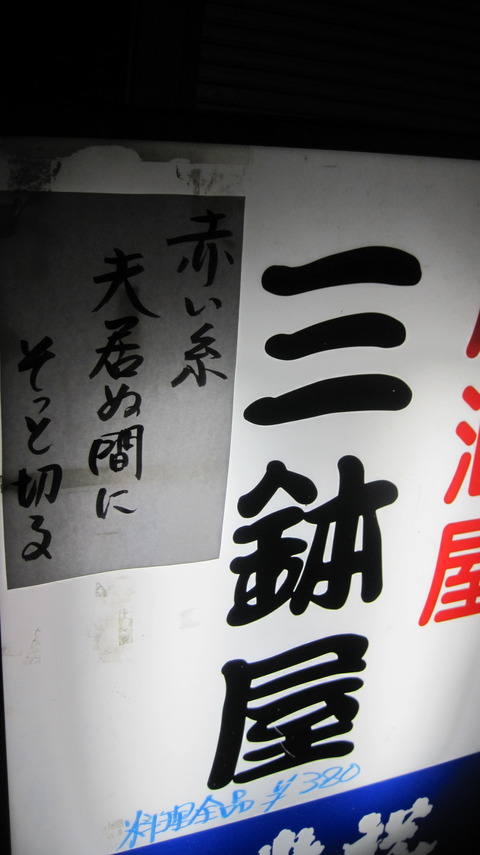 酒屋
三鉢屋
赤い糸
夫居ぬ間に
そっと切る
料理全品¥380